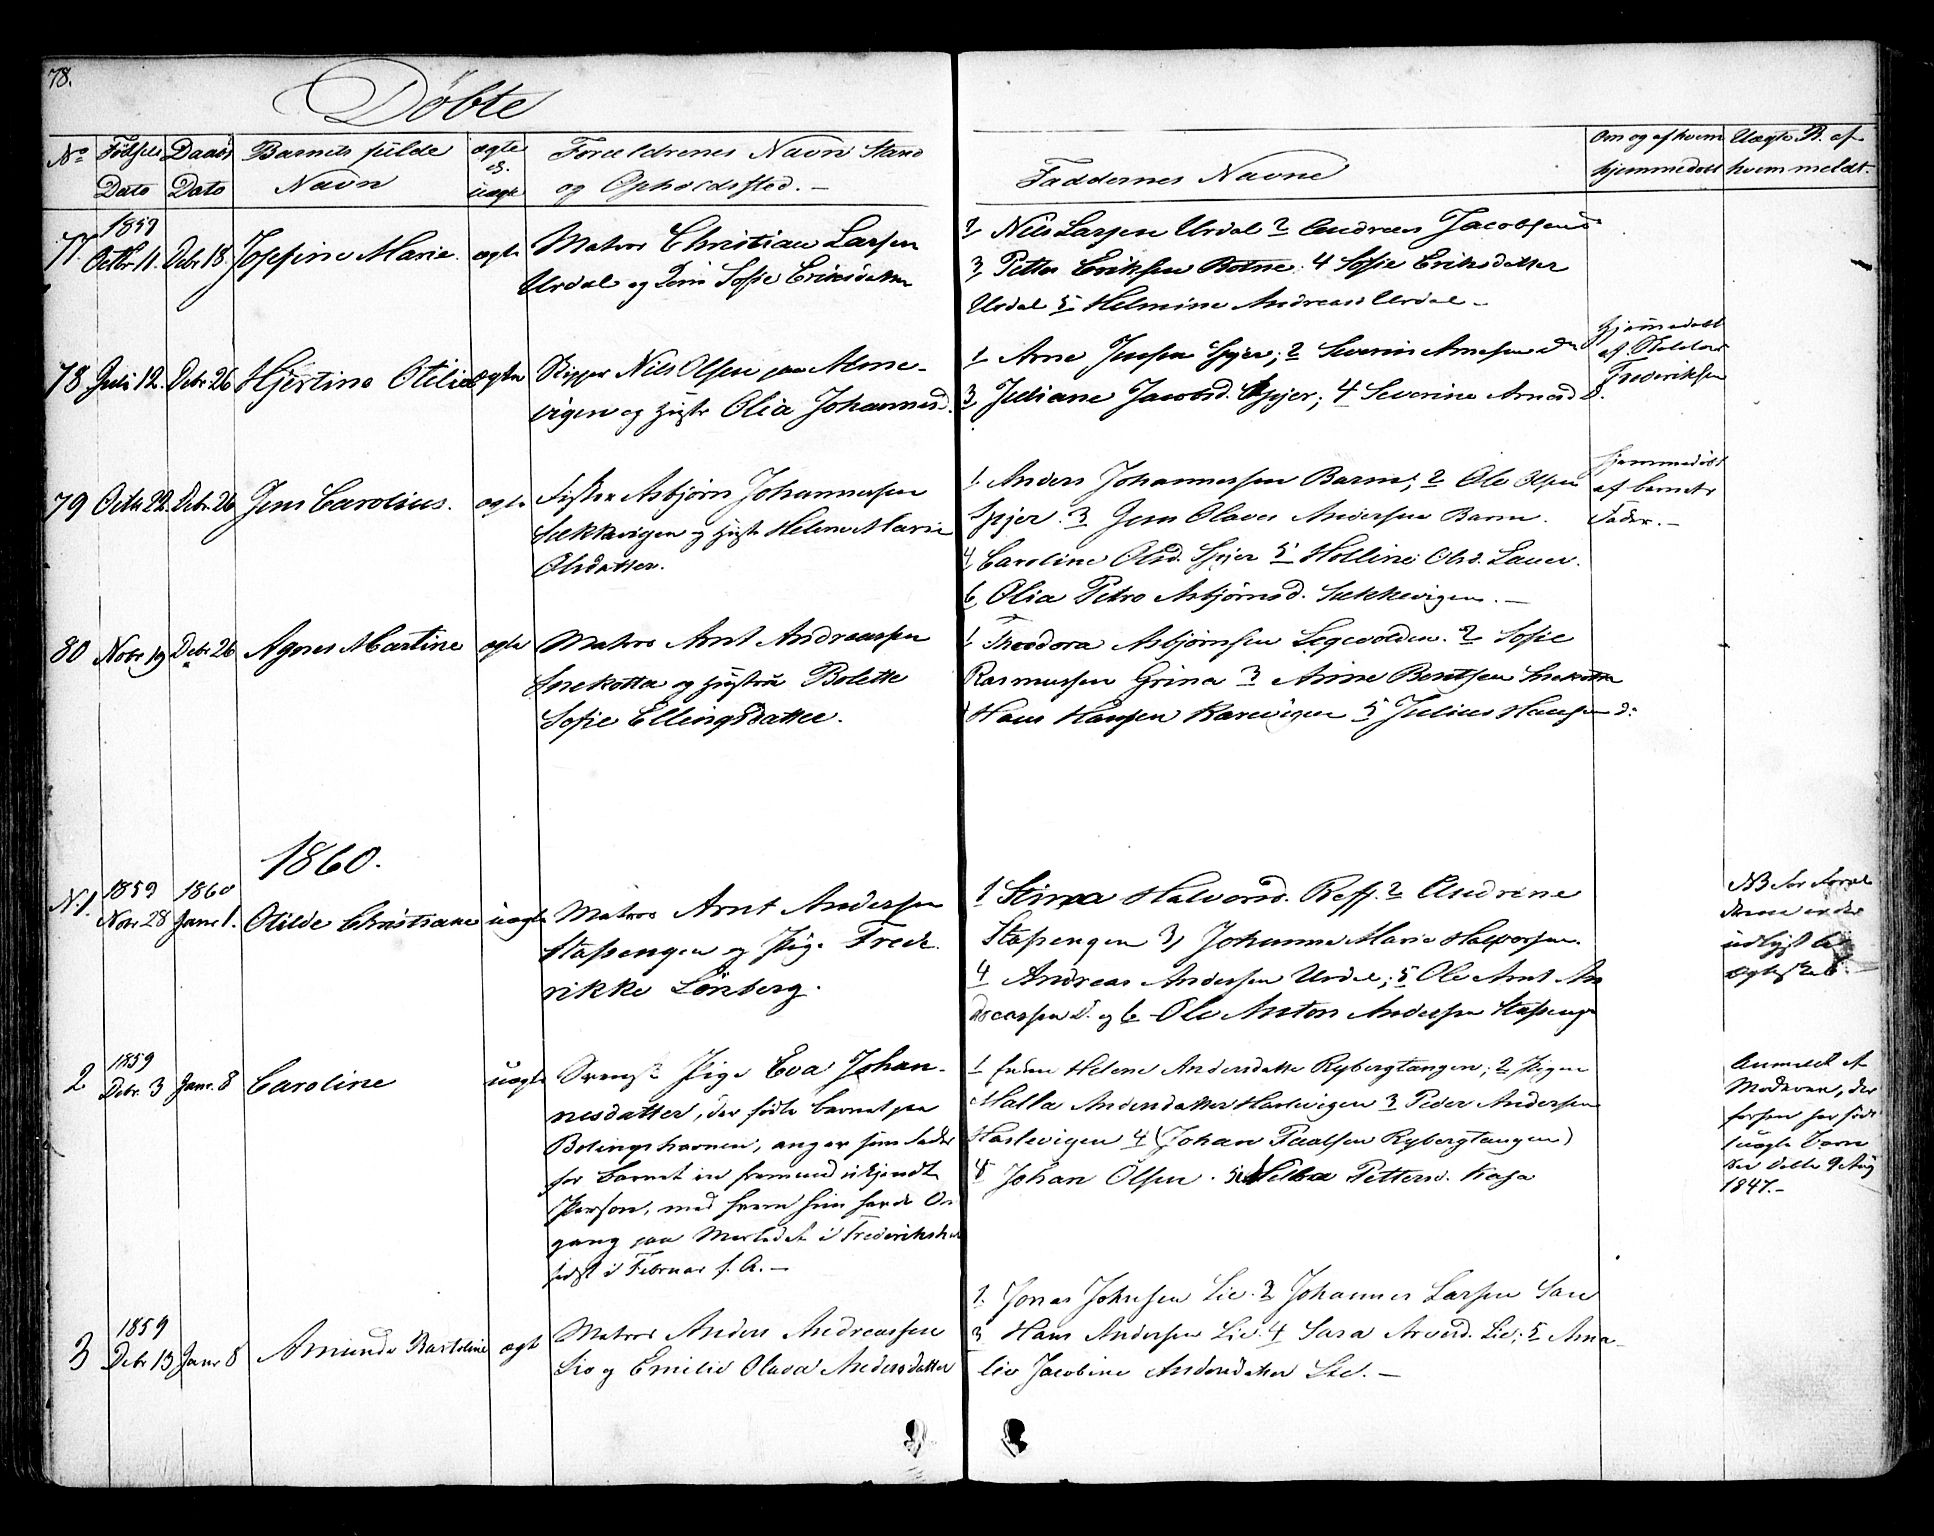 78.
Døbte
No Fødsels Dato Daabs Dato Barnets fulde Navn ægte el. uægte Forældrenes Navn Stand og Opholdssted. —
Faddernes Navne
Om og af hvem hjemmedøbt
Uægte B. af hvem meldt.
77. 1859 Octbr 11. Debr 18. Josefine Marie. ægte
Matros Christian Larsen
Urdal og Sofie Eriksdatter
Nils Larsen Urdal 2 Andreas Jacobsen
3 Petter Eriksen Botne. 4 Sofie Eriksdatter
Urdal 5 Helmine Andreasd Urdal —
78 Juli 12. Debr 26 Hjertine Otilie ægte
Skipper Nils Olsen paa
vigen og Hustr Olia Johannesd.
1 Arne Jensen Spjer; 2 Severin Arnesen
3 Juliane Jacobsd. Spjer; 4 Severine Arnesd D.
hjemmedøbt
af
Frederiksen
79 Octbr 22. Debr. 26 Jens Carolius. ægte
Fisker Asbjørn Johannessen
Sækkevigen og Hustr Helene Marie
Olsdatter.
1 Anders Johannessen Barm; 2 Ole Olsen
Spjer. 3 Jens Olaves Andersen Barm.
4 Caroline Olsd. Spjer 5 Holline Olsd. Lauer.
6 Olia Petro Asbjørnsd. Sækkevigen. —
hjemmedøbt
af barnets
Fader. —
80 Novbr 19 Debr 26 Agnes Martine ægte
Matros Arnt Andreassen
Snekotta og Hustru Bolette
Sofie Ellingsdatter.
1 Theodora Asbjørnsen 2 Sofie
Rasmussen Grina 3 Anne Bentsen Snekotta
Hans Hansen 5 Julius Hansen d:
1860.
N.1. 1859 Nov 28 1860 Janr 1. Otilde Christiane uægte
Matros Arnt Andersen
Stassengen og Pige Frede
rikke Lønberg.
1 Stina Halvorsd. Reff. 2 Andrine
Stassengen 3, Johanne Marie Halvorsen.
4 Andreas Andersen Urdal; 5 Ole Arnt An
dreassen d. og 6 Ole Anton Andersen Stasseng
NB for Foræl
drene er der
udlyst til
Ægteskab. —
2 1859 Debr. 3 Janr. 8 Caroline uægte
Svensk Pige Eva Johan-
nesdatter, der fødte barnet paa
angav som Fader
for Barnet en fremmed ukjendt
Person, med hvem hun havde Om
gang paa Markedet i Frederikshald
sidst i Februar f. A. —
1 Helene Andersdatter Rybergtangen; 2, Pigen
Malla Andersdatter Haslevigen 3 Peder Andersen
Haslevigen 4 (Johan Paalsen Rybergtangen)
Johan Olsen. Petters. Kasa
Anmeldt af
Moderen, der
forhen har født
1 uægte Barn
9 Aug
1847. —
3 1859 Debr 13 Janr 8 Amunda Bartoline ægte
Matros Anders Andreassen
Lie og Emilie Olava Andersdatter
1. Jonas Johnsen Lie. 2 Johannes Larsen
3 Hans Andersen Lie. 4 Sara Arvesd. Lie; 5 Ama-
lie Jacobine Andersdatter Lie. —